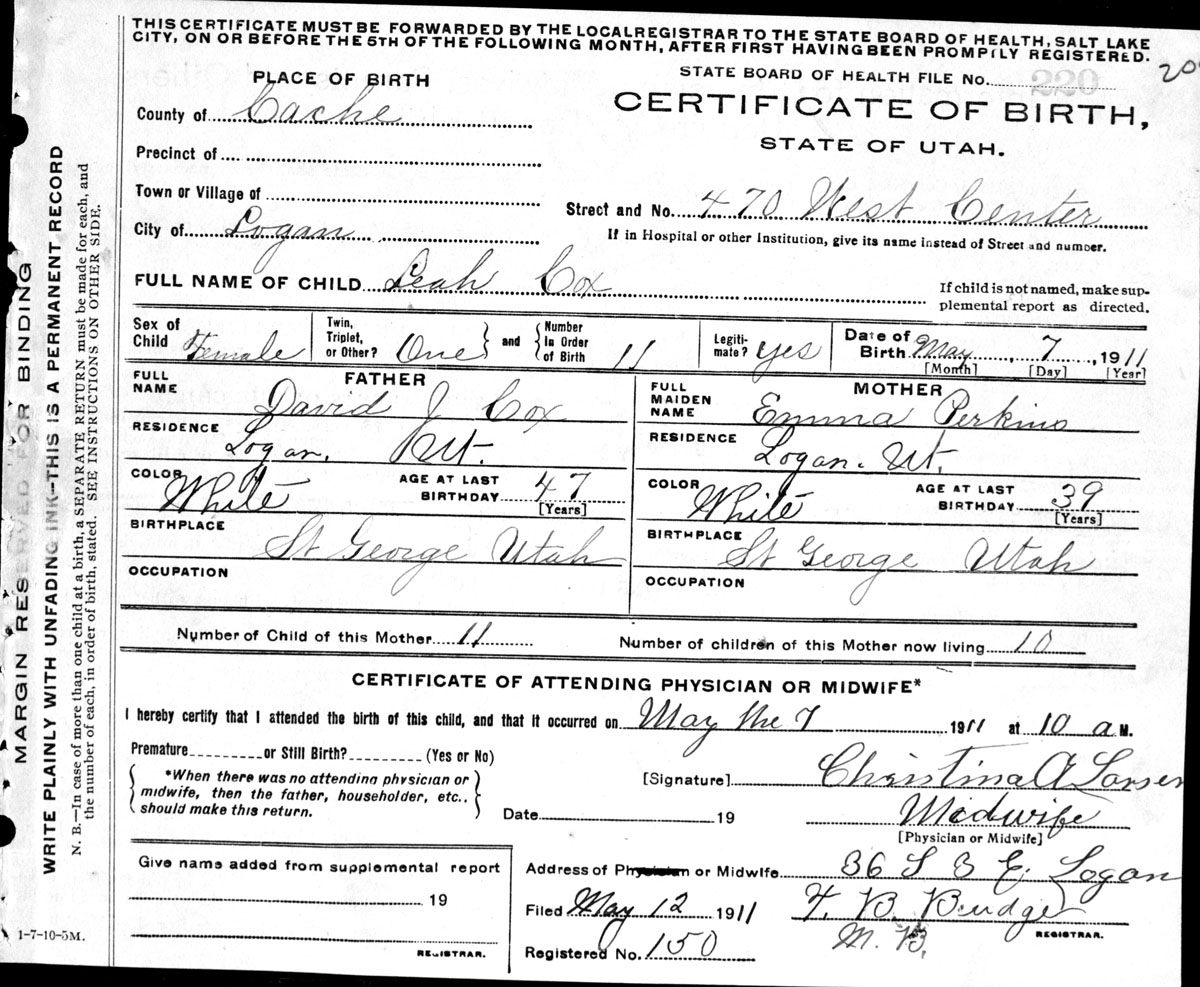 THIS CERTIFICATE MUST BE FORWARDED BY THE LOCALREGISTRAR TO THE STATE BOARD OF HEALTH, SALT LAKE
CITY, ON OR BEFORE THE 5TH OF THE FOLLOWING MONTH, AFTER FIRST HAVING BEEN PROMPILY REGISTERED.
MARGIN RESERVED FOR BINDING
WRITE PLAINLY WITH UNFADING INK—THIS IS A PERMANENT RECORD
N. B.—In case of more than one child at a birth, a SEPARATE RETURN must be made for each, and
the number of each, in order of birth, stated. SEE INSTRUCTIONS ON OTHER SIDE.
PLACE OF BIRTH
STATE BOARD OF HEALTH FILE No. 220
County of Cache
CERTIFICATE OF BIRTH,
STATE OF UTAH.
Precinct of
Town or Village of
Street and No. 470 West Center
City of Logan
If in Hospital or other Institution, give its name instead of Street and number.
FULL NAME OF CHILD Leah Cox
If child is not named, make sup-
plemental report as directed.
Sex of Child Female
Twin, Triplet, or Other? One and Number In Order of Birth 11
Legiti-mate? yes
Date of Birth May, 7, 1911
[Month] [Day] [Year]
FATHER
FULL NAME David J Cox
RESIDENCE Logan, Ut.
COLOR White AGE AT LAST BIRTHDAY 47
[Years]
BIRTHPLACE St George Utah
OCCUPATION
MOTHER
FULL MAIDEN NAME Emma Perkins
RESIDENCE Logan. Ut.
COLOR White AGE AT LAST BIRTHDAY 39
[Years]
BIRTHPLACE St George Utah
OCCUPATION
Number of Child of this Mother 11 Number of children of this Mother now living 10
CERTIFICATE OF ATTENDING PHYSICIAN OR MIDWIFE*
I hereby certify that I attended the birth of this child, and that it occurred on May the 7 1911 at 10 a M.
Premature or Still Birth? (Yes or No)
*When there was no attending physician or
midwife, then the father, householder, etc.,
should make this return.
[Signature] Christina A Larsen
Date 19 Midwife
[Physician or Midwife]
Give name added from supplemental report
19
REGISTRAR.
1-7-10-5M.
Address of Physician or Midwife 36 S 3 E. Logan
Filed May 12 1911 F. B. Budge
M. B. REGISTRAR.
Registered No. 150